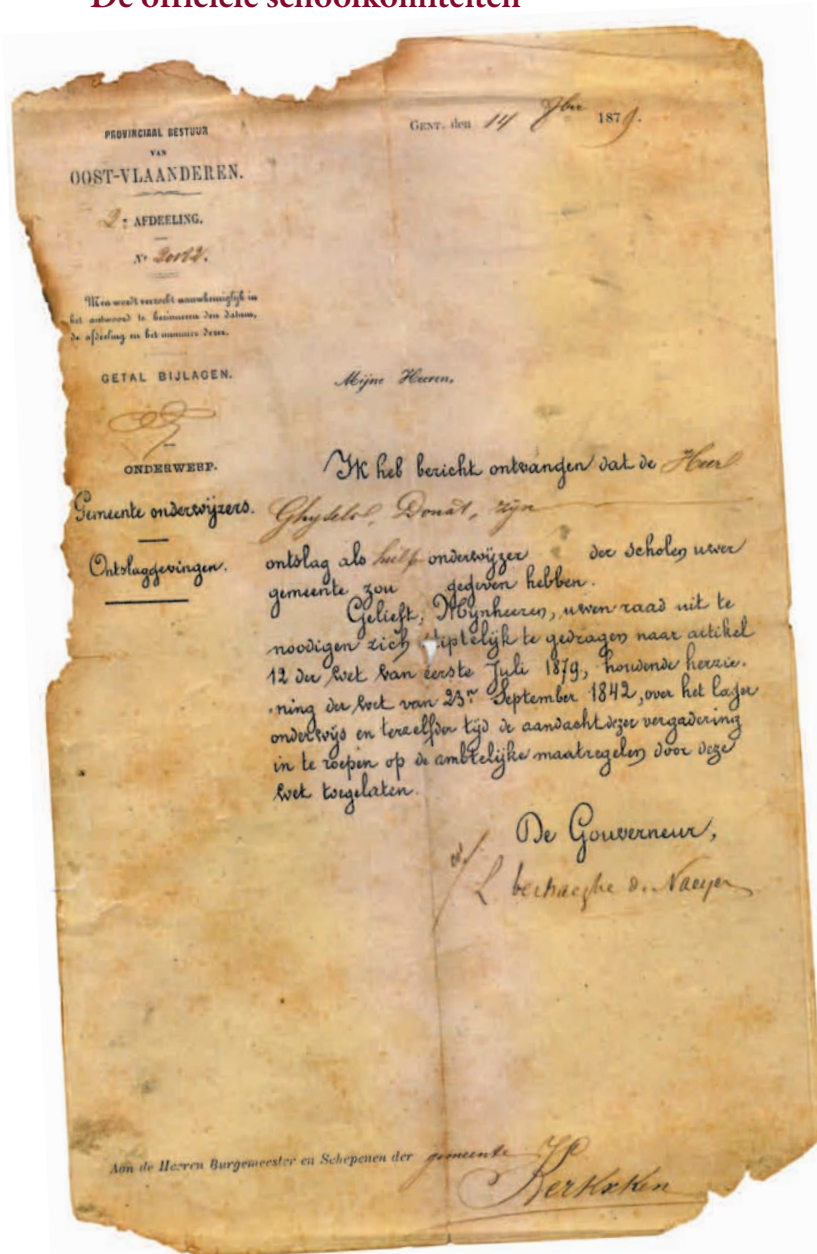 De officiële schoolkomiteiten
PROVINCIAAL BESTUUR
VAN
OOST-VLAANDEREN.
2e AFDEELING.
No
Men wordt verzocht nauwkeuriglijk in
het antwoord te herinneren den datum,
de afdeeling en het nummer dezer.
GETAL BIJLAGEN.
ONDERWERP.
Gemeente onderwijzers.
Ontslaggevingen.
GENT, den 14 1879.
Mijne Heeren,
Ik heb bericht ontvangen dat de Heer
Ghysels, Donat, zijn
ontslag als hulp onderwijzer der scholen uwer
gemeente zou gegeven hebben.
Gelieft, Mijnheeren, uwen raad uit te
noodigen zich stiptelijk te gedragen naar artikel
12 der wet van eerste Juli 1879, houdende herzie-
ning der wet van 23n September 1842, over het lager
onderwijs en terzelfder tijd de aandacht dezer vergadering
in te roepen op de ambtelijke maatregelen door deze
wet toegelaten.
De Gouverneur,
L de Naeyer
Aan de Heeren Burgemeester en Schepenen der gemeente
Kerkxken